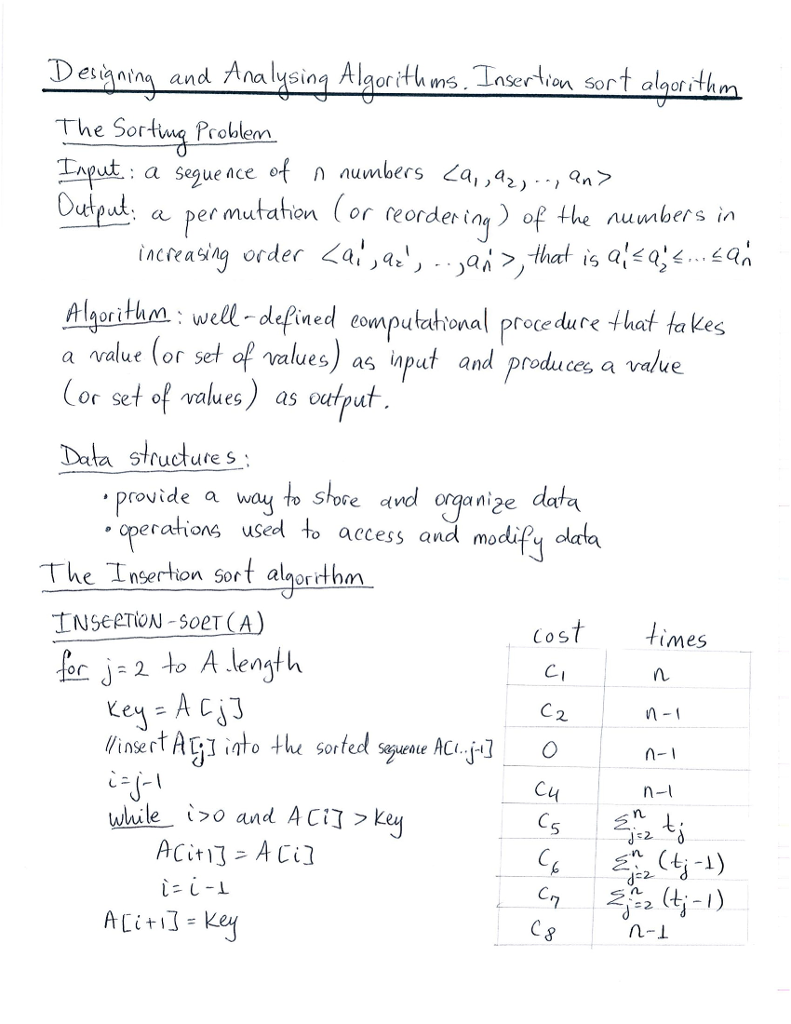 Designing and Analysing Algorithms. Insertion sort algorithm
The Sorting Problem
Input: a sequence of n numbers <a₁, a₂, .., aₙ>
Output: a permutation (or reordering) of the numbers in
increasing order <a₁', a₂', .., aₙ'>, that is a₁' ≤ a₂' ≤ ... ≤ aₙ'
Algorithm: well-defined computational procedure that takes
a value (or set of values) as input and produces a value
(or set of values) as output.
Data structures:
• provide a way to store and organize data
• operations used to access and modify data
The Insertion sort algorithm
INSERTION-SORT(A) cost times
for j=2 to A.length C₁ n
Key = A[j] C₂ n-1
//insert A[j] into the sorted sequence A[1..j-1] 0 n-1
i=j-1 C₄ n-1
while i>0 and A[i] > Key C₅ Σⁿⱼ₌₂ tⱼ
A[i+1] = A[i] C₆ Σⁿⱼ₌₂ (tⱼ-1)
i=i-1 C₇ Σⁿⱼ₌₂ (tⱼ-1)
A[i+1] = Key C₈ n-1